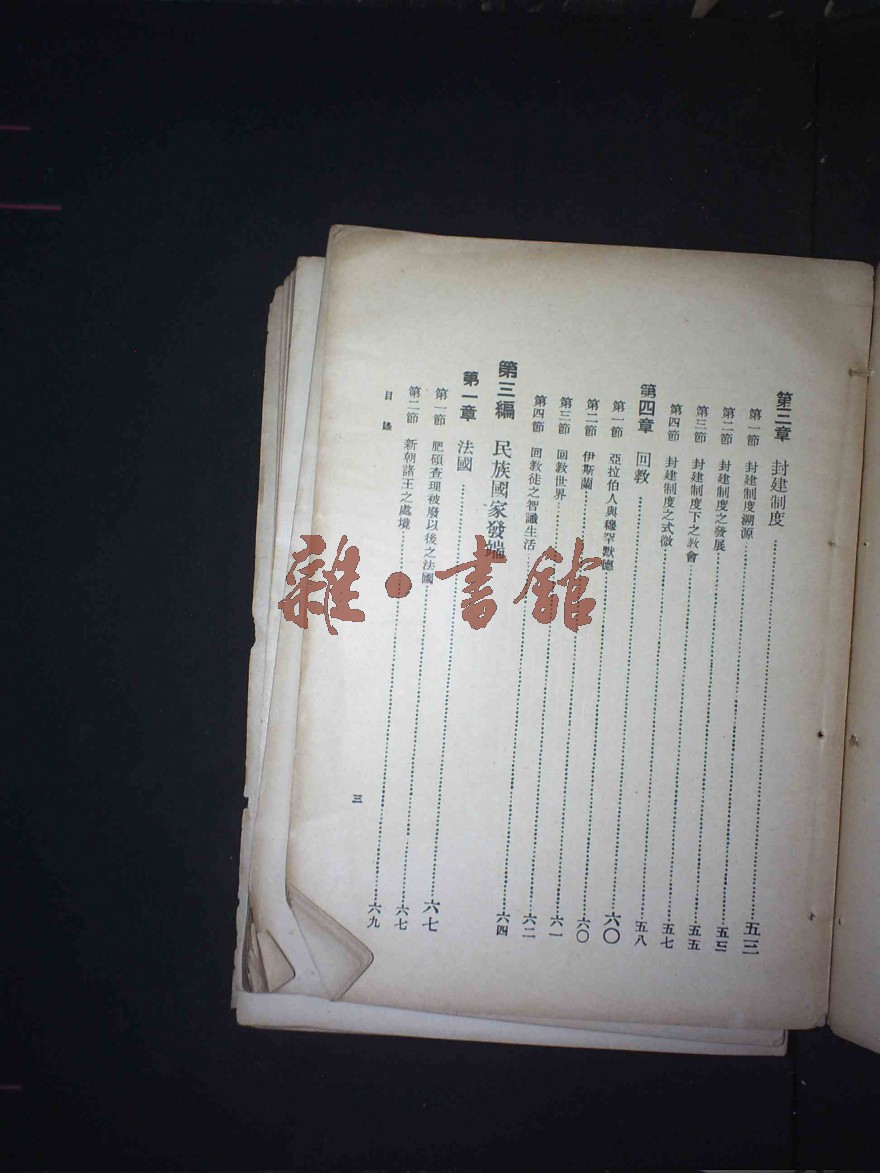 第三章 封建制度……五三
第一節 封建制度溯源……五三
第二節 封建制度之發展……五五
第三節 封建制度下之教會……五七
第四節 封建制度之式微……五八
第四章 回教……六〇
第一節 亞拉伯人與穆罕默德……六〇
第二節 伊斯蘭……六一
第三節 回教世界……六二
第四節 回教徒之智識生活……六四
第三編 民族國家發端
第一章 法國……六七
第一節 肥碩查理被廢以後之法國……六七
第二節 新朝諸王之處境……六九
目錄
三
雜·書館